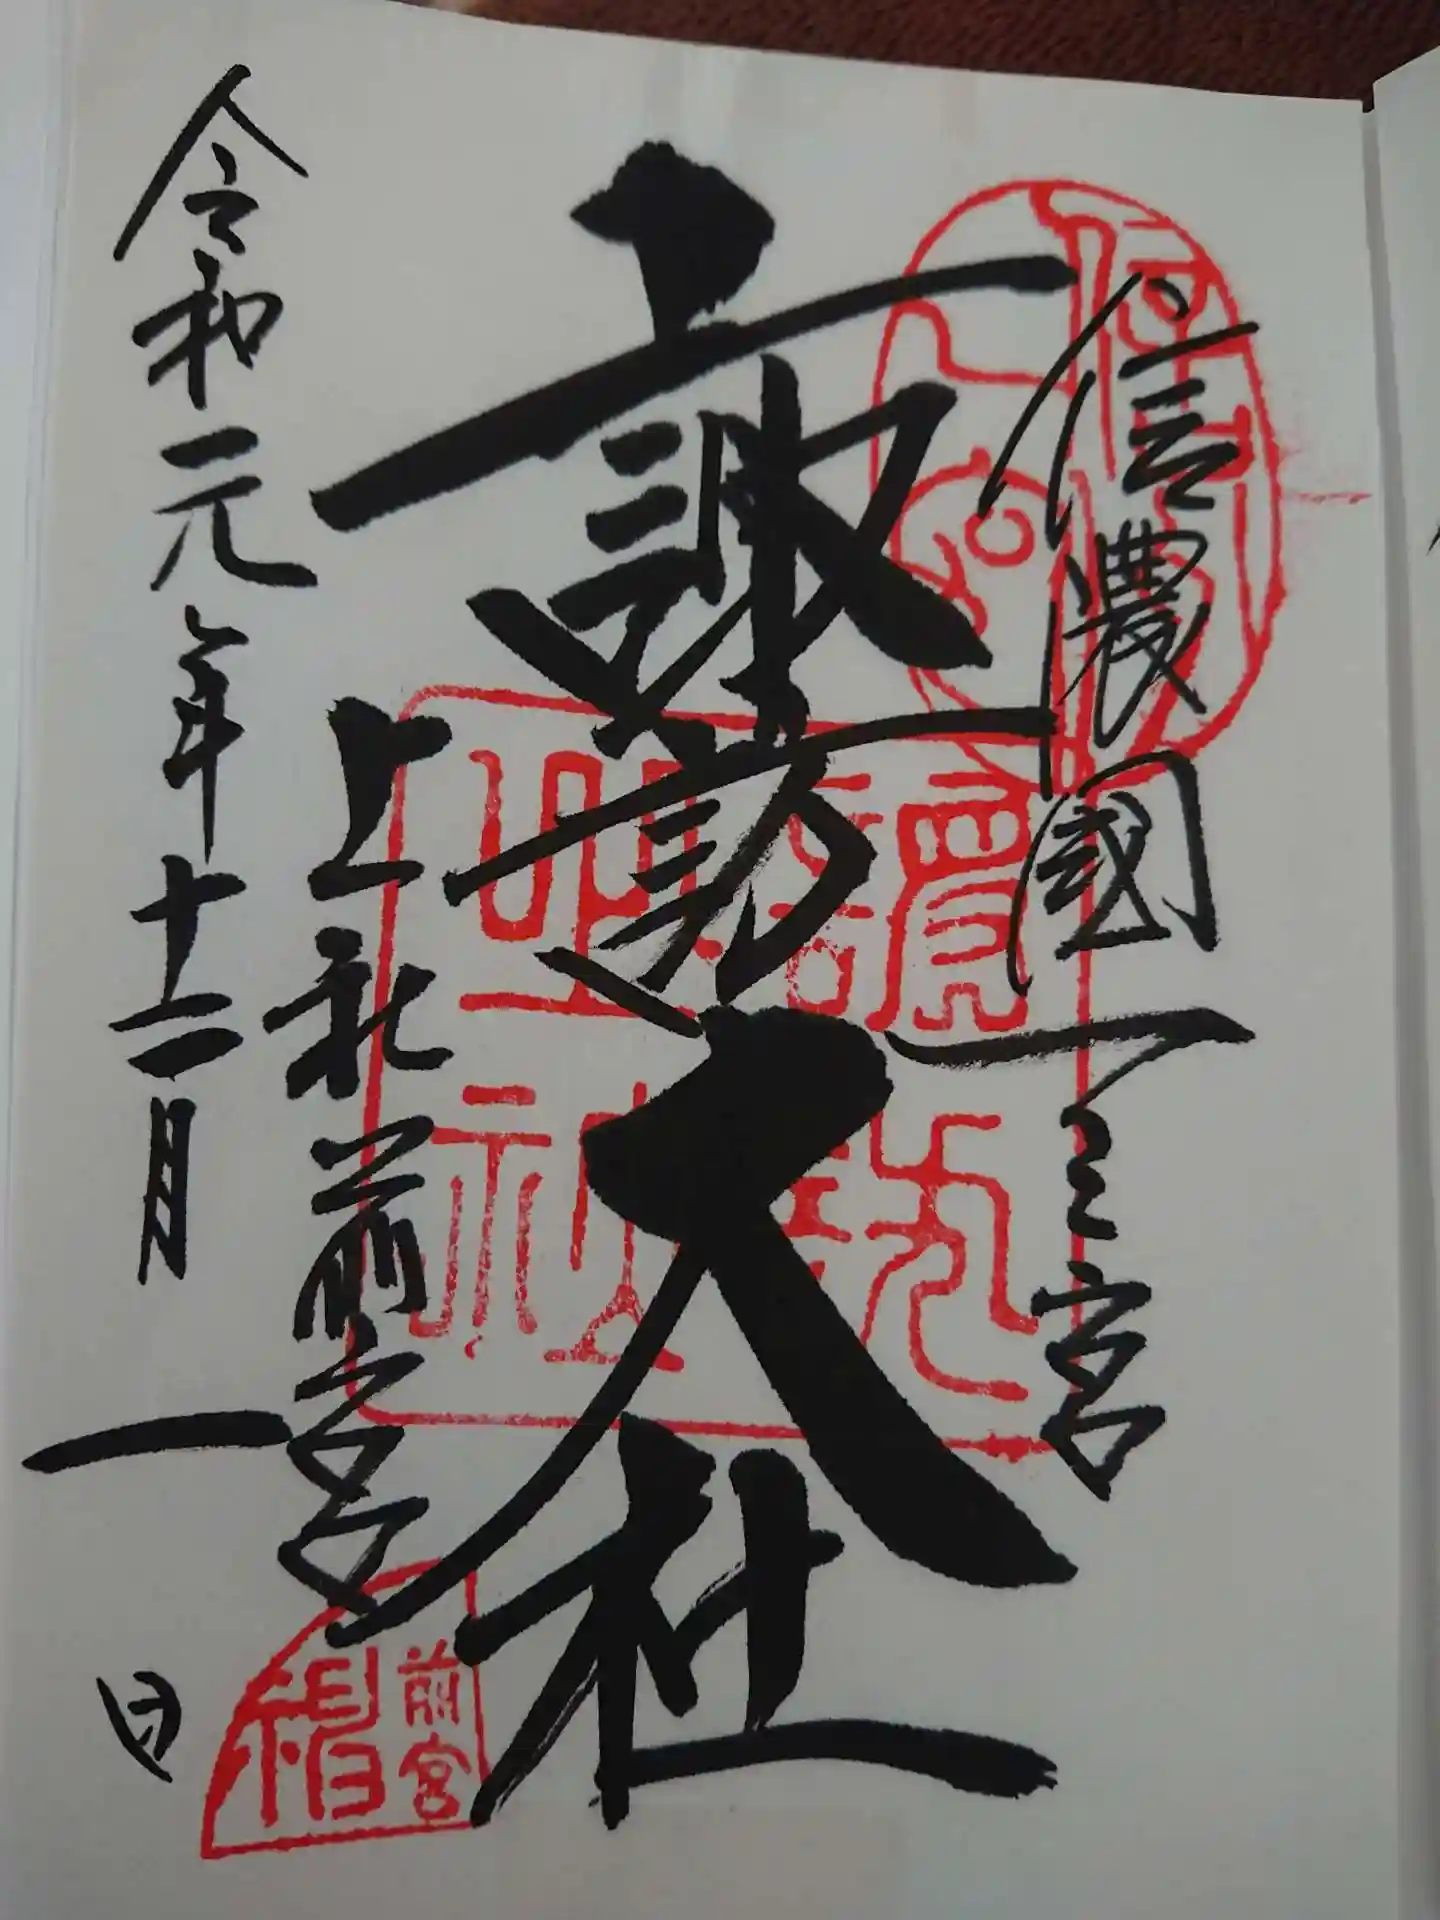 信濃國一之宮
諏訪大社
上社前宮
令和元年十二月一日
前宮
楫